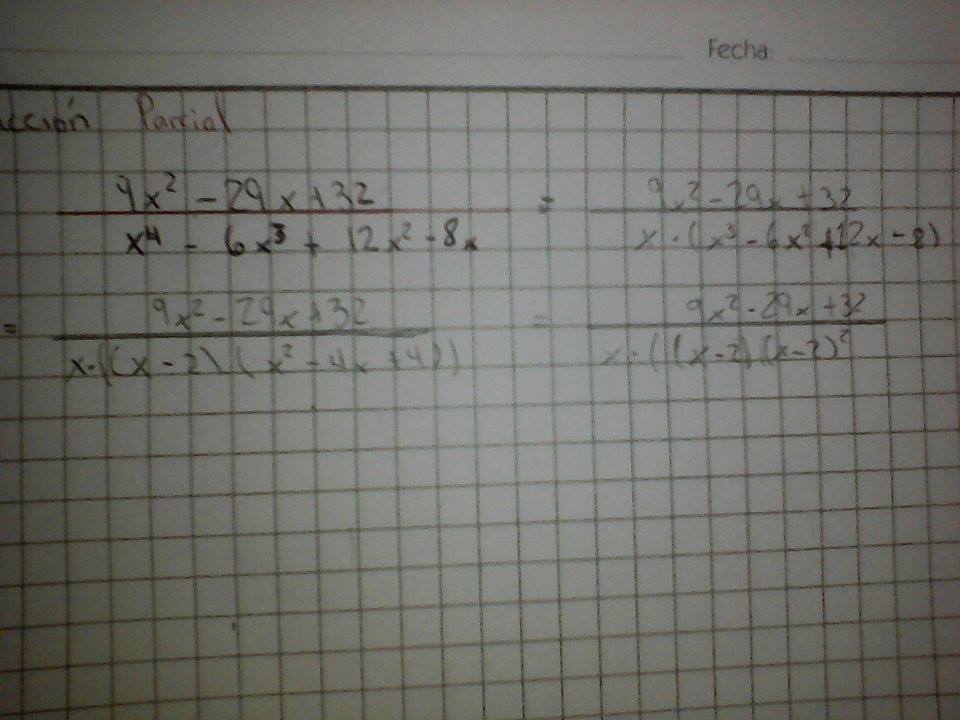 Fecha:
cción Parcial
9x² - 29x + 32 / x⁴ - 6x³ + 12x² - 8x = 9x² - 29x + 32 / x·(x³ - 6x² + 12x - 8)
= 9x² - 29x + 32 / x·((x - 2)(x² - 4x + 4)) = 9x² - 29x + 32 / x·((x - 2)(x - 2)²